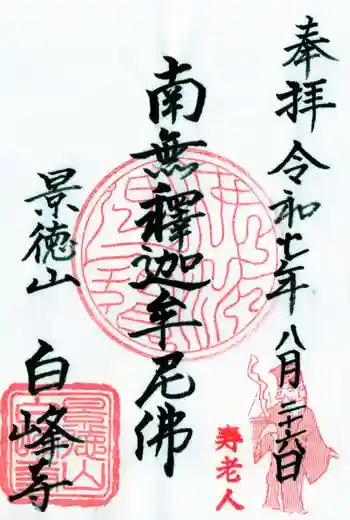 奉拝 令和七年 八月二十六日
南無釋迦牟尼佛
景徳山
白峰寺
寿老人